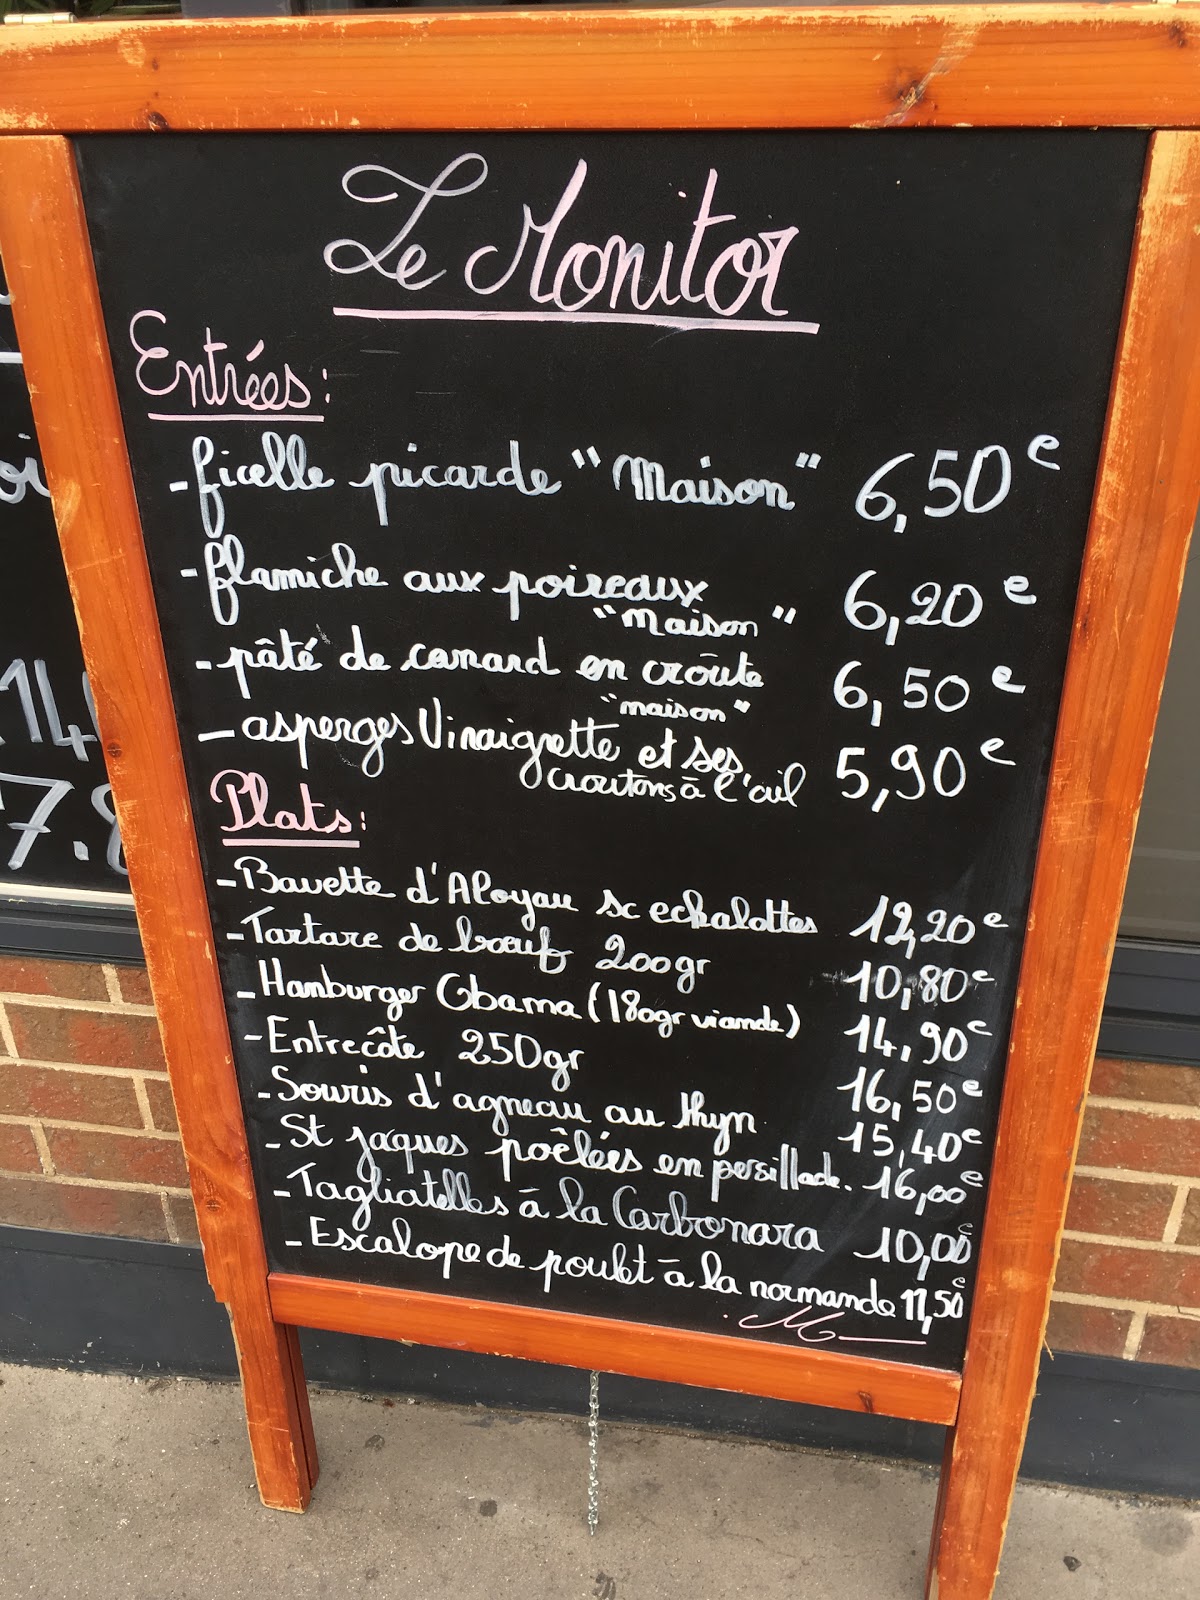 Le Monitor
Entrées:
- ficelle picarde "Maison" 6,50e
- flamiche aux poireaux 6,20e
"Maison"
- pâté de canard en croûte 6,50e
"maison"
- asperges Vinaigrette et ses 5,90e
croutons à l'ail
Plats:
- Bavette d'Aloyau sc echalottes 12,20e
- Tartare de bœuf 200gr 10,80e
- Hamburger Obama (180gr viande) 14,90e
- Entrecôte 250gr 16,50e
- Souris d'agneau au thyn 15,40e
- St jacques poêlées en persillade. 16,00e
- Tagliatelles à la Carbonara 10,00e
- Escalope de poulet à la normande 11,50e
14
7.8